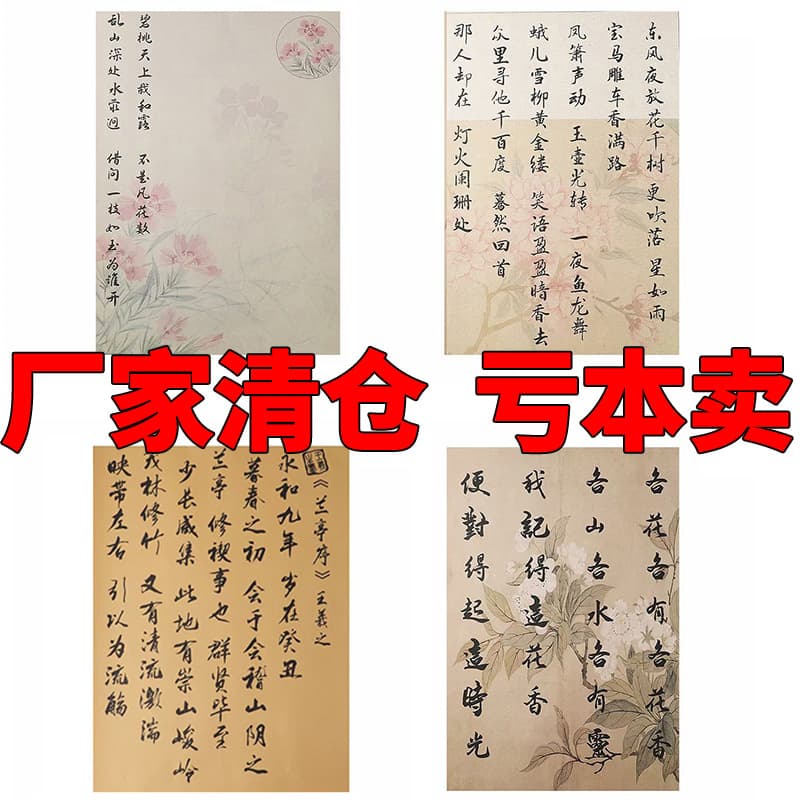 碧桃天上栽和露 不是凡花数
乱山深处水萦迴 借问一枝如玉为谁开
东风夜放花千树 更吹落 星如雨
宝马雕车香满路
凤箫声动 玉壶光转 一夜鱼龙舞
蛾儿雪柳黄金缕 笑语盈盈暗香去
众里寻他千百度 蓦然回首
那人却在 灯火阑珊处
厂家清仓 亏本卖
《兰亭序》王羲之
永和九年 岁在癸丑
暮春之初 会于会稽山阴之
兰亭 修禊事也 群贤毕至
少长咸集 此地有崇山峻岭
茂林修竹 又有清流激湍
映带左右 引以为流觞
各花各有各花香
各山各水各有靈
我記得這花香
便對得起這時光